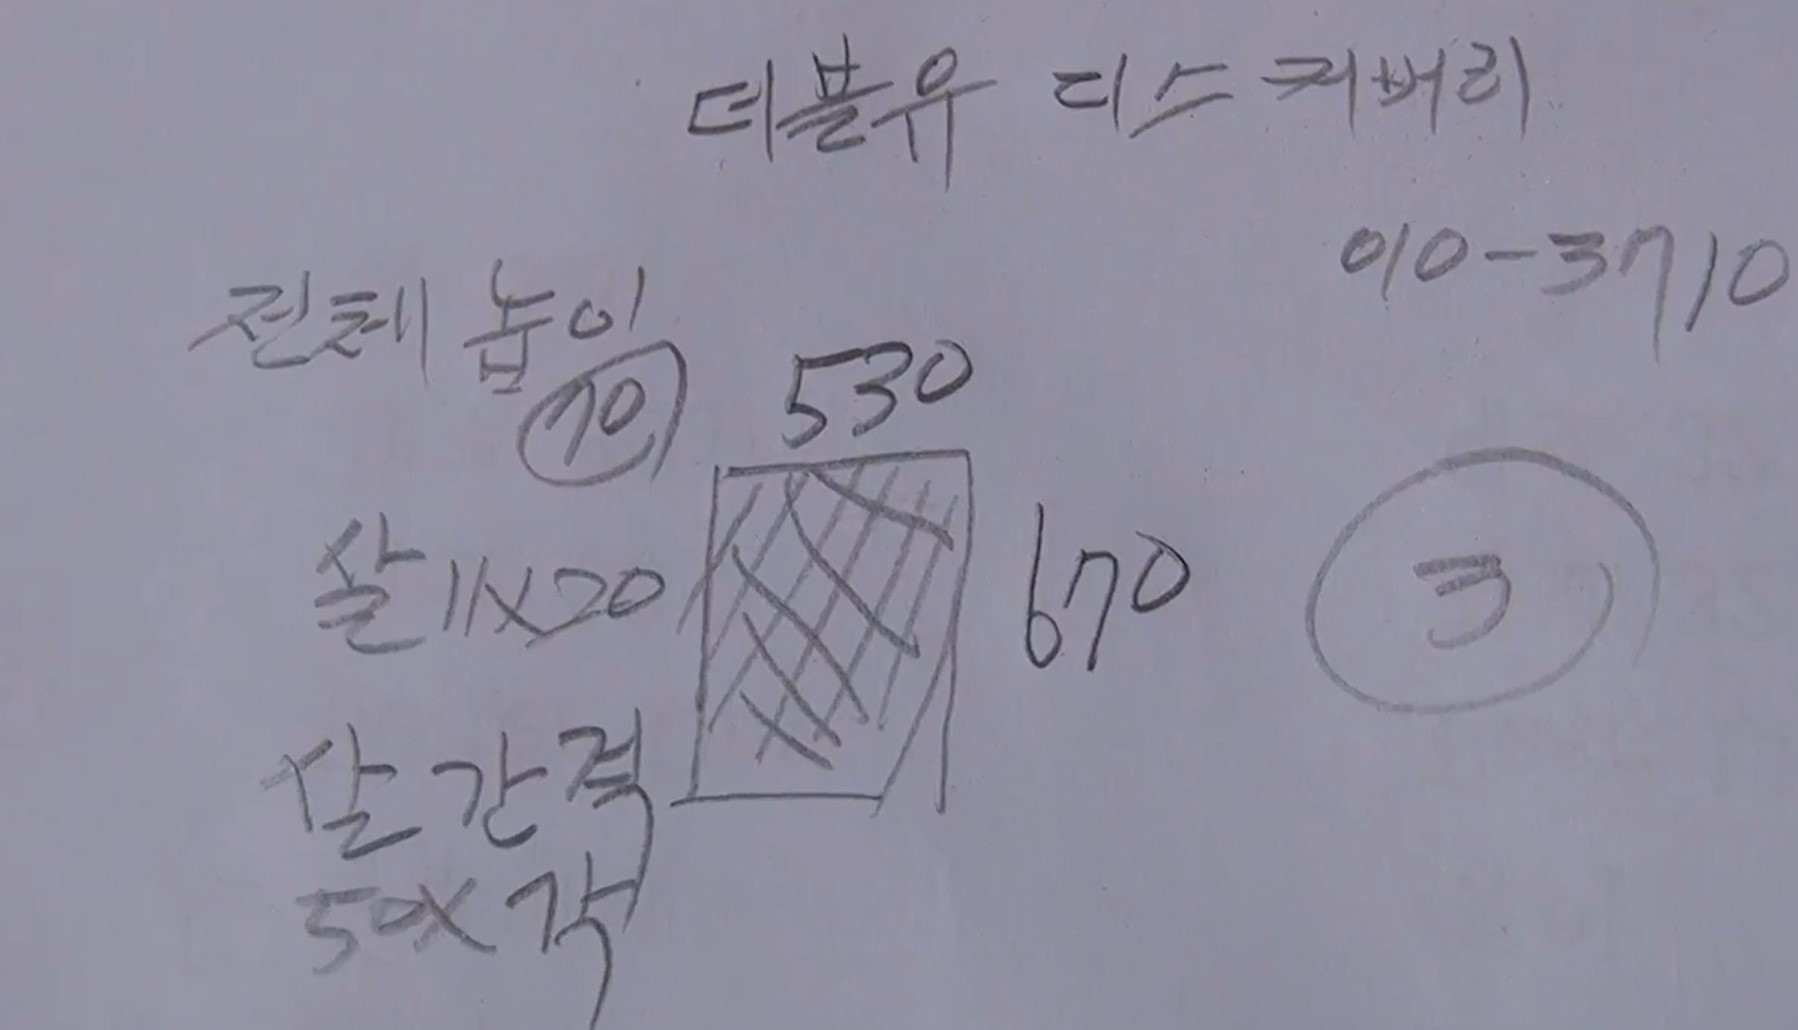 더블유 디스커버리
010-3710
전체 높이
70
530
살 11X20
670
3
살 간격
50X 각